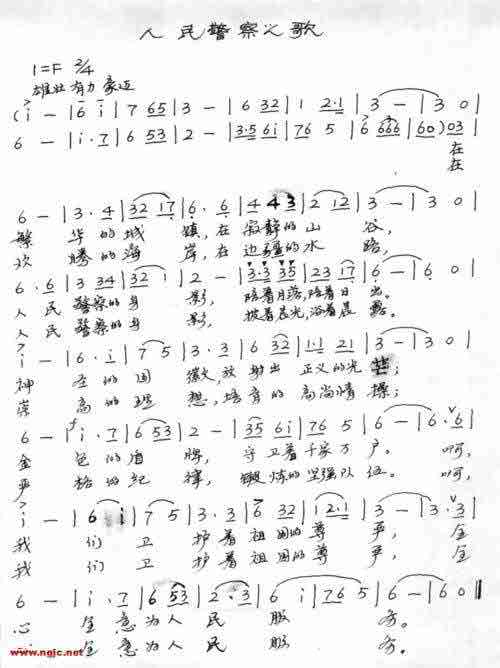 人民警察之歌
1=F 2/4
雄壮 有力 豪迈
(i - | 6 i | 7 65 | 3 - | 6 32 | 1 2·1 | 3 - | 3 0 |
6 - | i·7 | 6 53 | 2 - | 3·5 6i | 76 5 | 6 666 | 60) 03 |
在
在
6 - | 3·4 | 32 17 | 6·6 | 4 43 | 2 12 | 3 - | 3 0 |
繁华的城镇,在寂静的山谷,
欢腾的海岸,在边疆的水路,
6·6 | 3 34 | 32 1 | 2 - | 3·3 35 | 23 17 | 6 - | 6 0 |
人民警察的身影,陪着月落,陪着日出。
人民警察的身影,披着晨光,沿着晨露。
i - | 6·i | 7 5 | 3·3 | 6 32 | 1·1 21 | 3 - | 3 0 |
神圣的国徽,放射出正义的光芒;
崇高的理想,培育的高尚情操;
6 - | i·7 | 6 53 | 2 - | 35 6i | 76 5 | 6 - | 6·6 |
金色的盾牌,守卫着千家万户。啊,
严格的纪律,锻炼的坚强队伍。啊,
i - | 6 i | 7 5 | 3·3 | 6 32 | 1 2·1 | 3 - | 3·3 |
我们卫护着祖国的尊严,全
我们卫护着祖国的尊严,全
6 - | i·7 | 6 53 | 2·3 | 6 i | 7 6 5 | 6 - | 6 0 ‖
心全意为人民服务。
心全意为人民服务。
www.ngjc.net